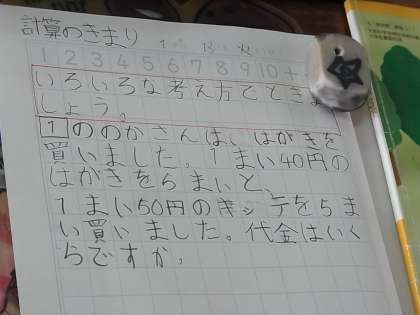 計算のきまり
1 2 3 4 5 6 7 8 9 10 +
いろいろな考え方でときま
しょう。
1 ののかさんは、はがきを
買いました。1まい40円の
はがきを5まいと、
1まい50円のキッテを5ま
い買いました。代金はいく
らですか。